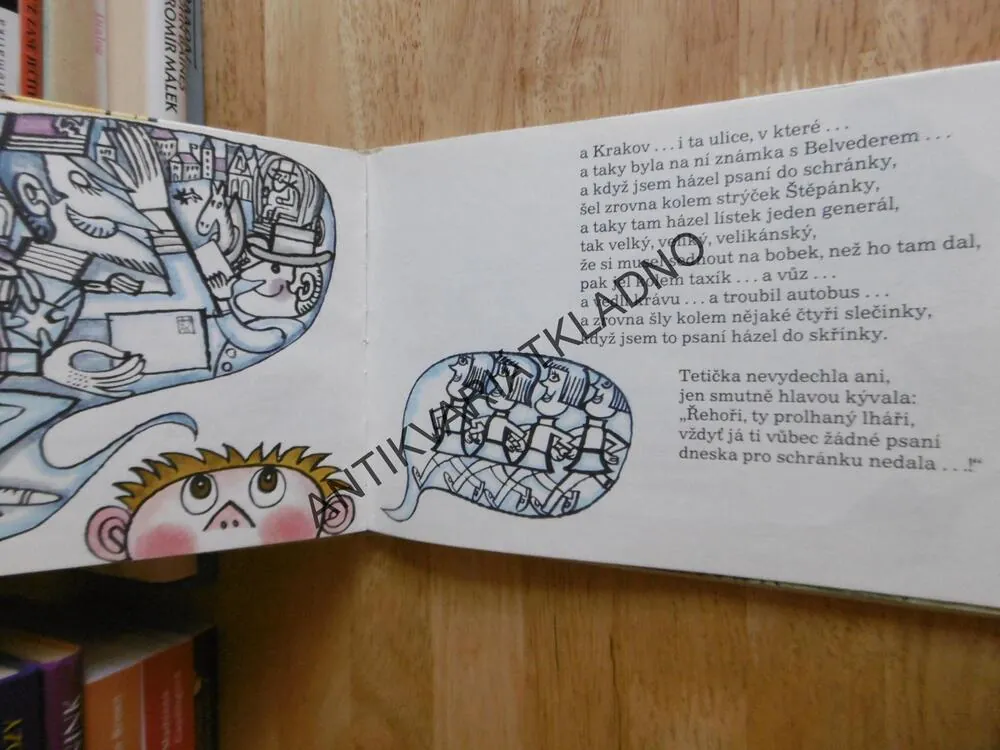 JAROMÍR MÁLEK
a Krakov . . . i ta ulice, v které . . .
a taky byla na ní známka s Belvederem . . .
a když jsem házel psaní do schránky,
šel zrovna kolem strýček Štěpánky,
a taky tam házel lístek jeden generál,
tak velký, veliký, velikánský,
že si musel sednout na bobek, než ho tam dal,
pak jel kolem taxík . . . a vůz . . .
a vedli krávu . . . a troubil autobus . . .
a zrovna šly kolem nějaké čtyři slečinky,
když jsem to psaní házel do skřínky.
Tetička nevydechla ani,
jen smutně hlavou kývala:
„Řehoři, ty prolhaný lháři,
vždyť já ti vůbec žádné psaní
dneska pro schránku nedala . . .!“
ANTIKVARIATKLADNO